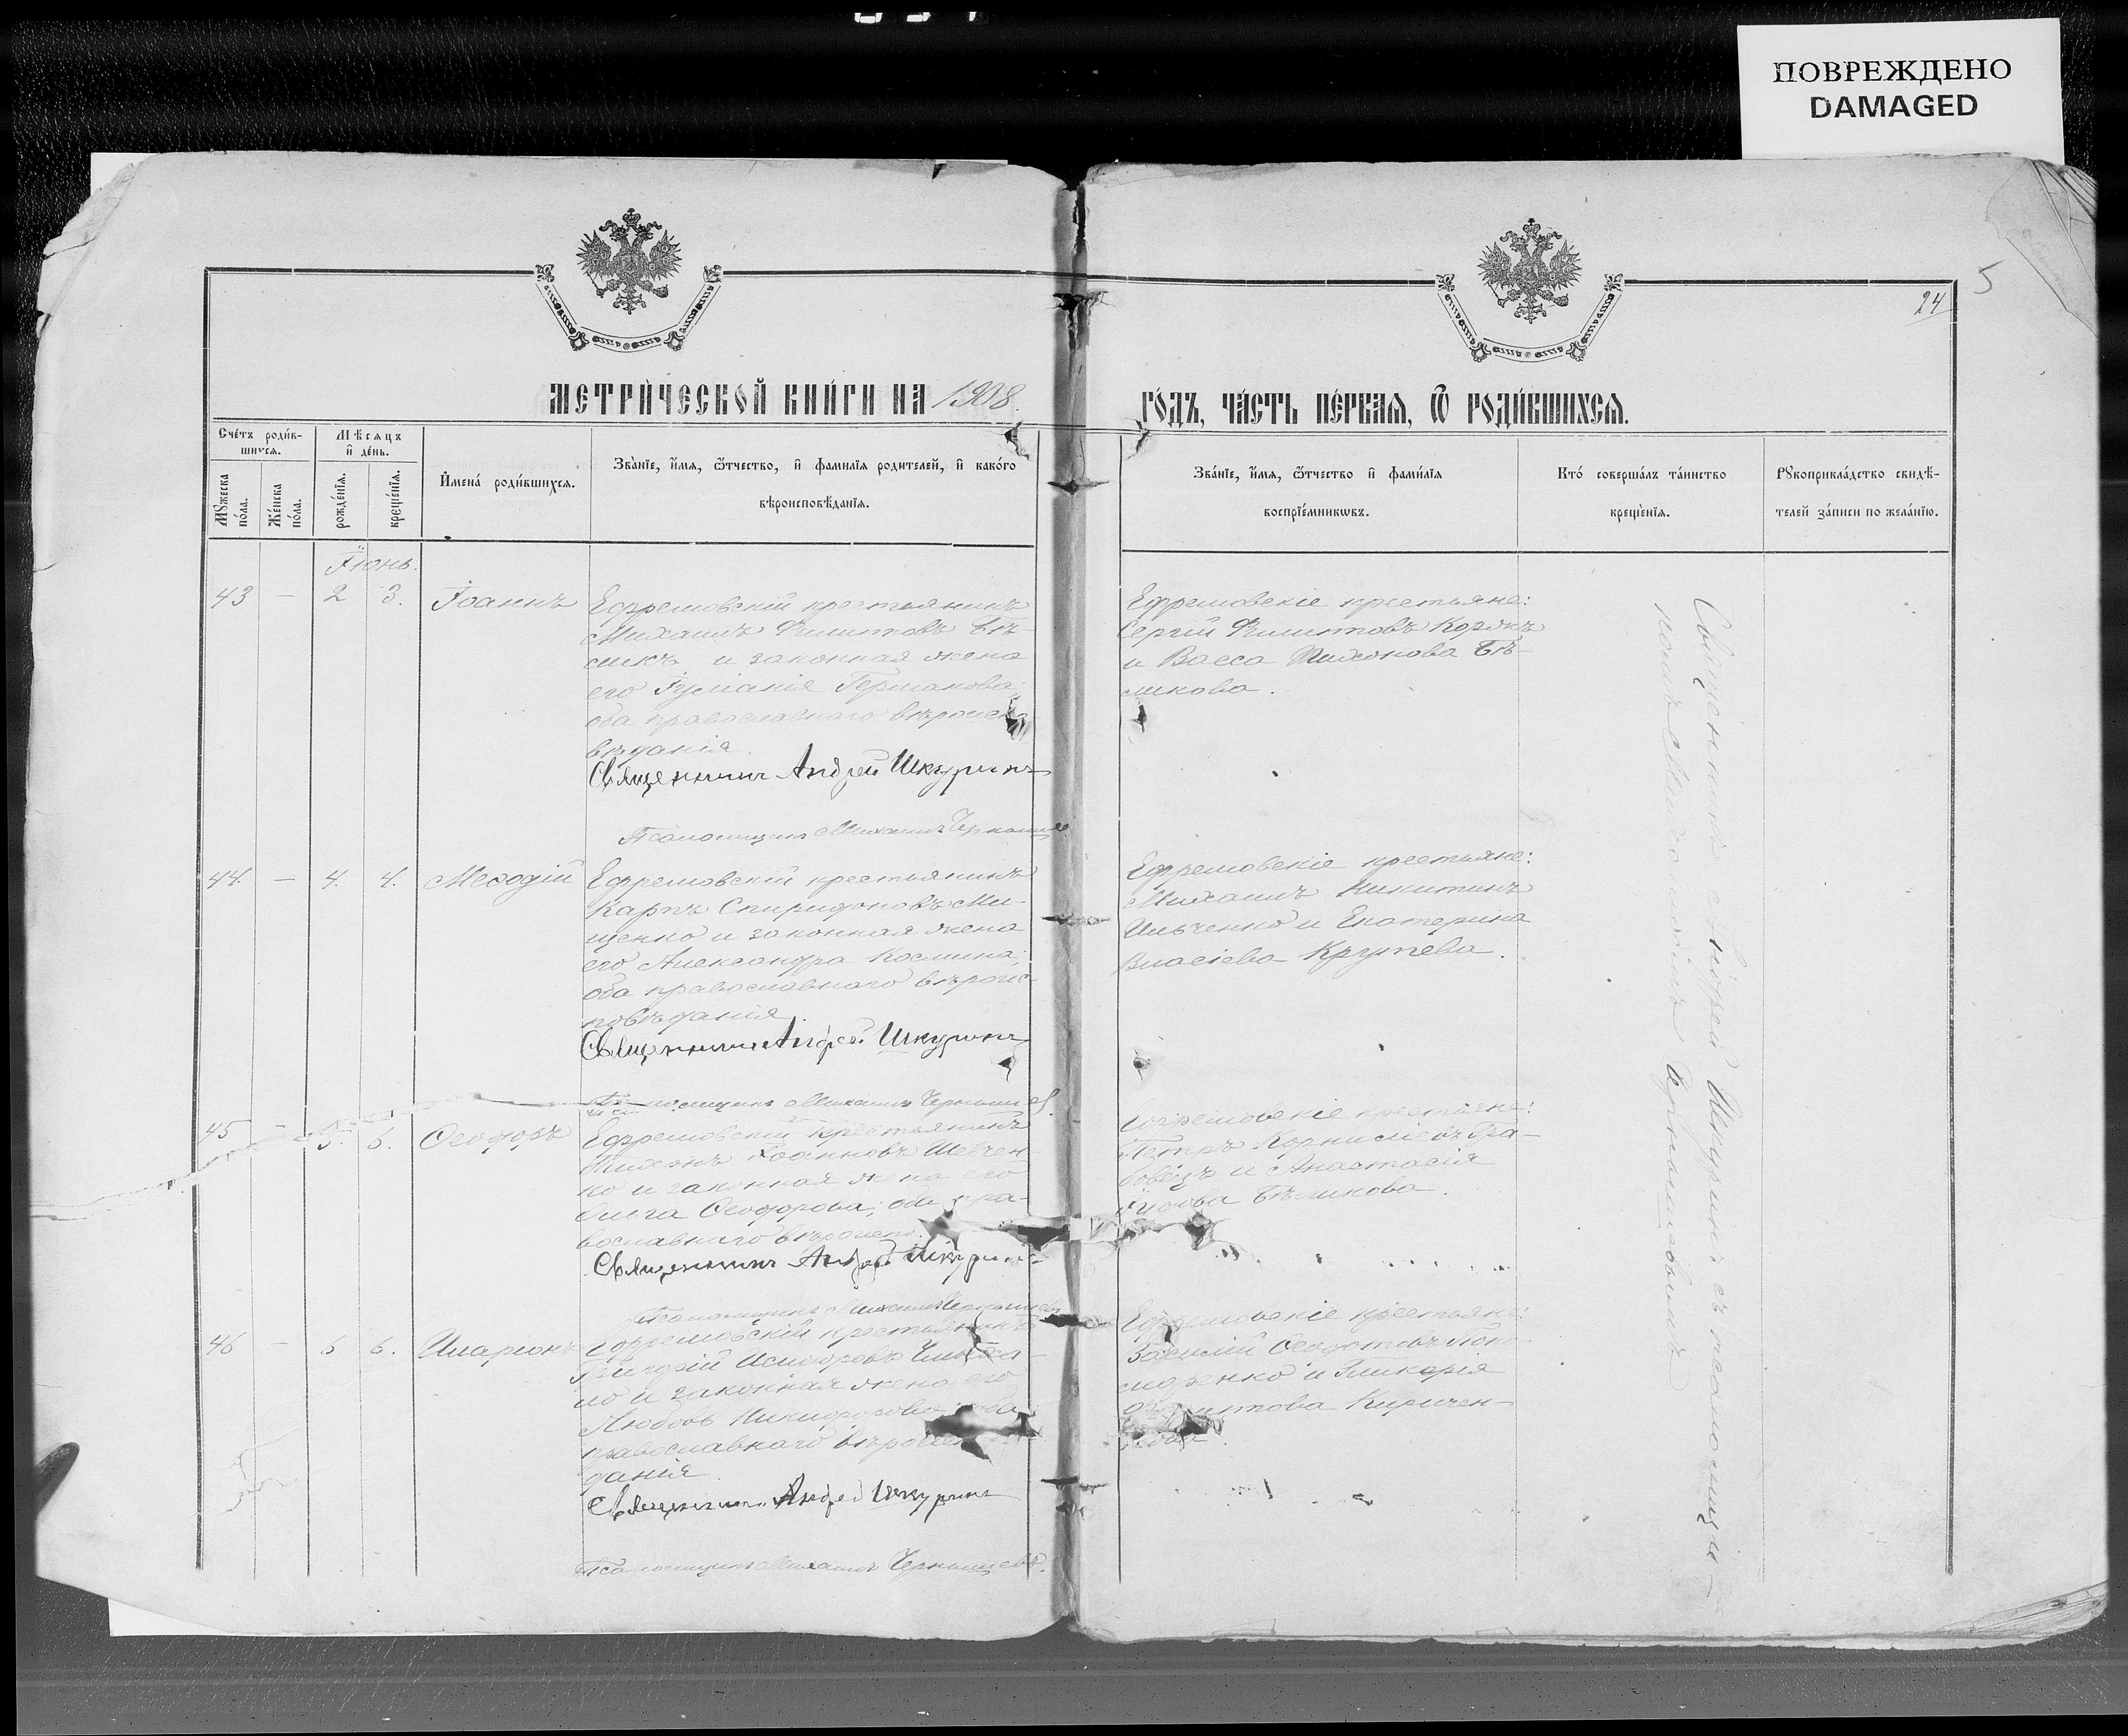 ПОВРЕЖДЕНО
DAMAGED
5
24
МЕТРИ́ЧЕСКОЙ КНИ́ГИ НА 1908.
ГО́ДЪ, ЧА́СТЬ ПЕ́РВАѦ, Ѿ РОДИ́ВШИХСѦ.
Сче́тъ роди́в-
шихсѧ.
Мѣсѧцъ
и҆ де́нь.
Мꙋжеска по́ла.
Же́нска по́ла.
рожде́нїѧ.
креще́нїѧ.
И҆мена́ роди́вшихсѧ.
Зва́нїе, и҆́мѧ, ѻ҆́тчество, и҆ фамилїѧ родителей, и҆ како́гѡ
вѣроисповѣ́данїѧ.
Зва́нїе, и҆́мѧ, ѻ҆́тчество и҆ фами́лїѧ
воспрїе́мникѡвъ.
Кто̀ соверша́лъ та́инство
креще́нїѧ.
Рꙋкоприкла́дство свидѣ́-
телей за́писи по жела́нїю.
Іюнь.
43 — 2 3. Іоаннъ
Ефремовскій крестьянинъ
Михаилъ Филиповъ Бѣ-
ликъ и законная жена
его Іуліанія Германова;
оба православнаго вѣроиспо-
вѣданія.
Священникъ Андрей Шкуринъ
Псаломщикъ Михаилъ Чернышевъ
Ефремовскіе крестьяне:
Сергій Филиповъ Корякъ
и Васса Тихонова Бѣ-
ликова.
44. — 4. 4. Меѳодій
Ефремовскій крестьянинъ
Карпъ Спиридоновъ Ми-
щенко и законная жена
его Александра Космина;
оба православнаго вѣроис-
повѣданія.
Священникъ Андрей Шкуринъ
Псаломщикъ Михаилъ Чернышев
Ефремовскіе крестьяне:
Михаилъ Никитинъ
Ильченко и Екатерина
Власіева Крутева.
45 — 5. 6. Ѳеодоръ
Ефремовскій крестьянинъ
Тихонъ Іоанновъ Шевчен-
ко и законная жена его
Ольга Ѳеодорова; оба пра-
вославнаго вѣроисп.
Священникъ Андрей Шкуринъ
Псаломщикъ Михаилъ Чернышевъ
Ефремовскіе крестьяне:
Петръ Корниліевъ Гра-
бовецъ и Анастасія
Бѣликова.
46 — 6 6. Иларіонъ
Ефремовскій крестьянинъ
Григорій Исидоровъ
ло и законная жена его
Любовь Никифорова; оба
православнаго вѣроиспо-
данія.
Священникъ Андрей Шкуринъ
Псаломщикъ Михаилъ Чернышевъ.
Ефремовскіе крестьяне:
Василій Ѳеодотовъ Поно-
маренко и Гликерія
Филиппова Киричен-
кова.
Священникъ Андрей Шкуринъ съ псаломщи-
комъ Михаиломъ Чернышевымъ